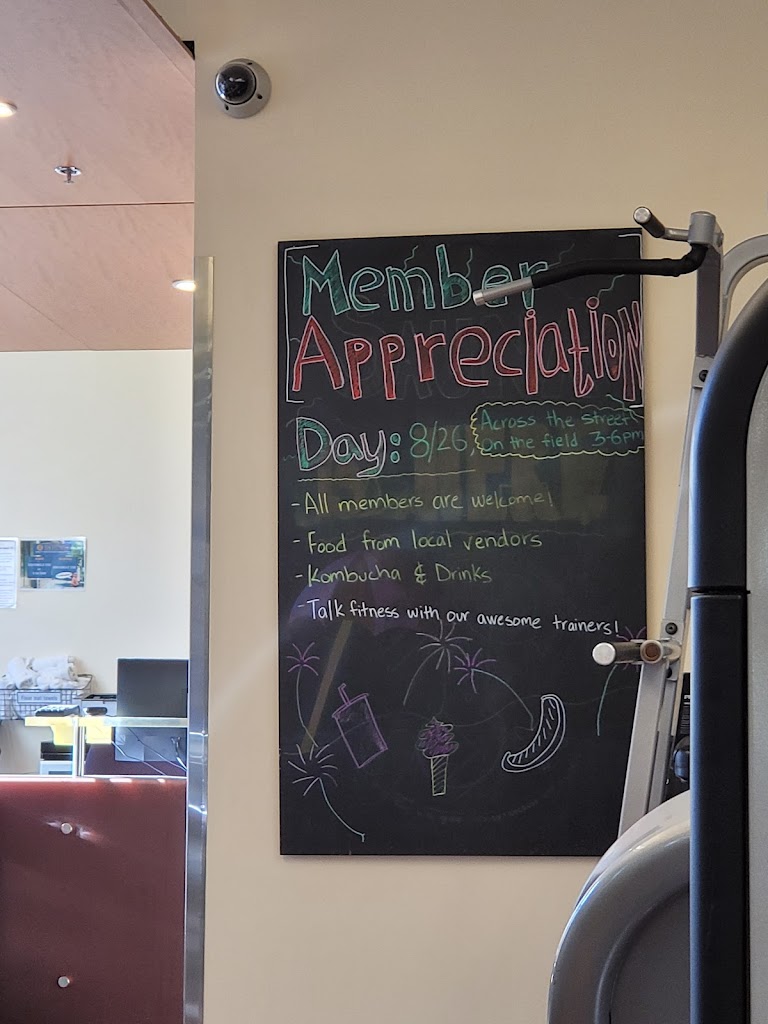 Member
Appreciation
Day: 8/26, Across the street
on the field 3-6pm
- All members are welcome!
- Food from local vendors
- Kombucha & Drinks
- Talk fitness with our awesome trainers!